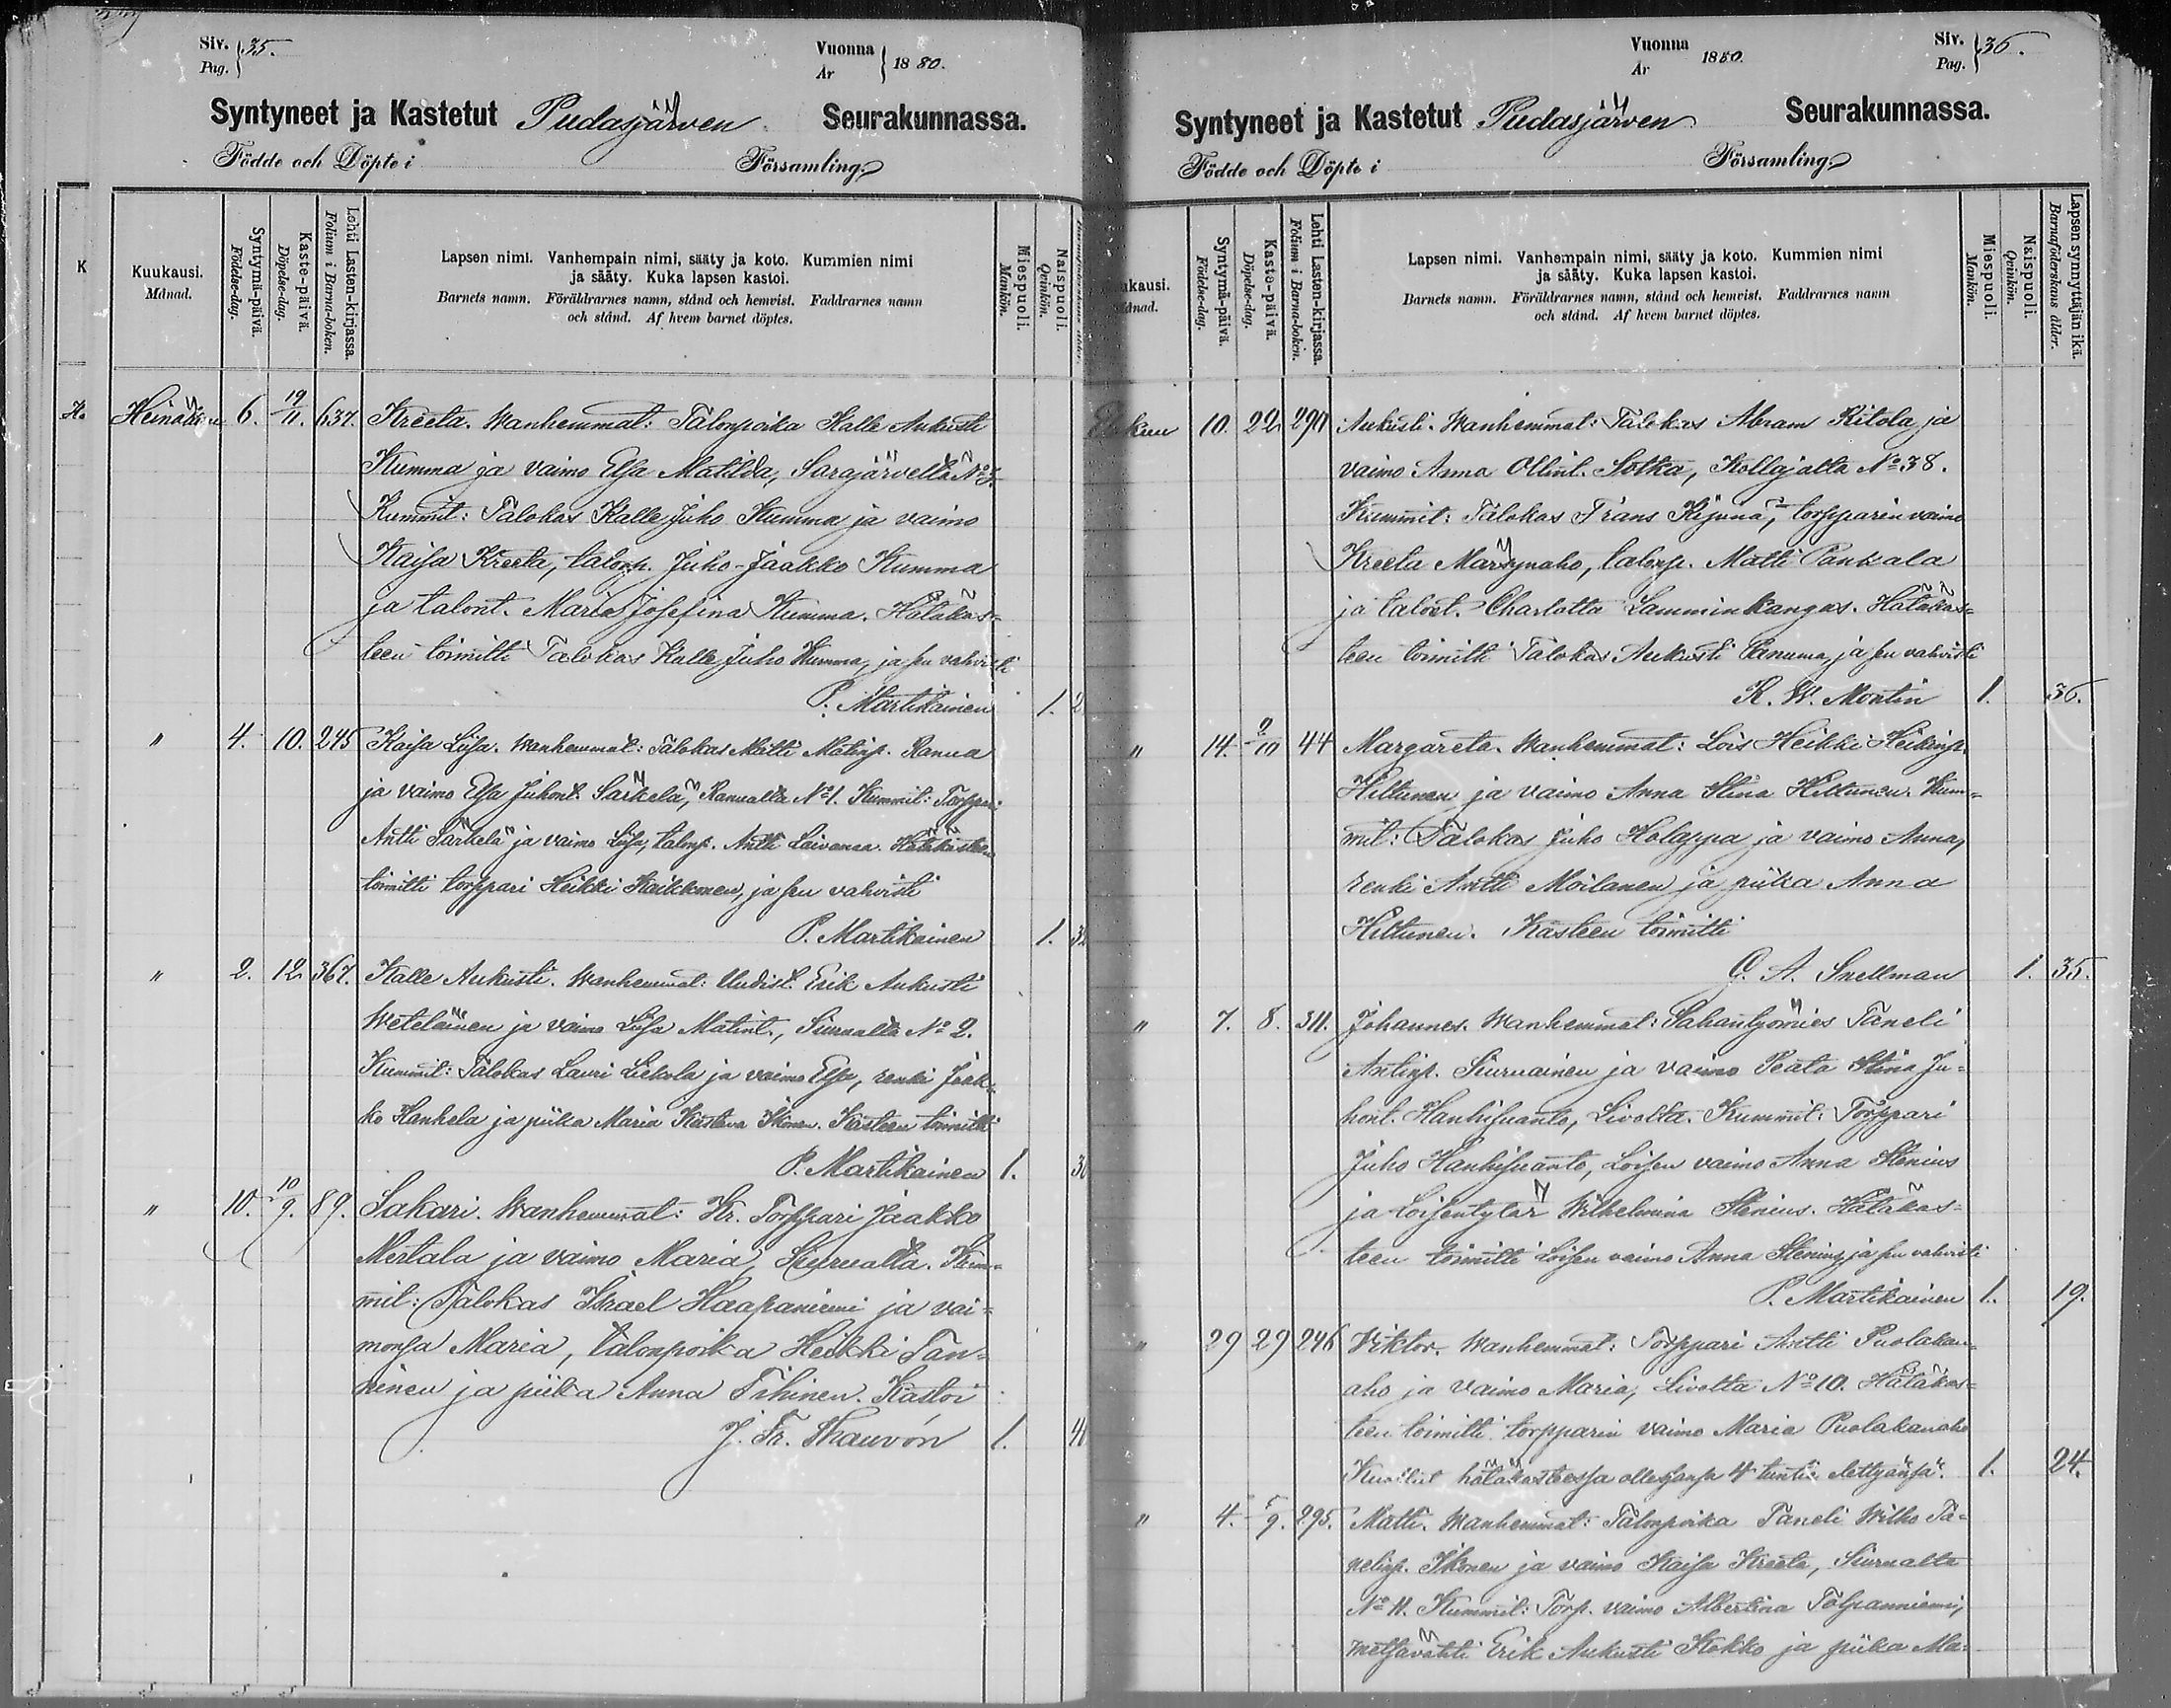 Siv. Pag. } 35.
Vuonna År } 1880.
Syntyneet ja Kastetut Pudasjärven Seurakunnassa.
Födde och Döpte i Församling.
K
Kuukausi. Månad.
Syntymä-päivä. Födelse-dag.
Kaste-päivä. Döpelse-dag.
Lehti Lasten-kirjassa. Folium i Barna-boken.
Lapsen nimi. Vanhempain nimi, sääty ja koto. Kummien nimi
ja sääty. Kuka lapsen kastoi.
Barnets namn. Föräldrarnes namn, stånd och hemvist. Faddrarnes namn
och stånd. Af hvem barnet döptes.
Miespuoli. Mankön.
Naispuoli. Qvinkön.
Heinäkuu 6. 19/11. 637. Kreeta. Wanhemmat: Talonpoika Kalle Aukusti
Kumma ja vaimo Elsa Matilda, Sarajärveltä No 3.
Kummit: Talokas Kalle Juho Kumma ja vaimo
Kaisa Kreeta, talonp. Juho-Jaakko Kumma
ja talont. Maria Josefina Kumma. Hätäkas-
teen toimitti Talokas Kalle Juho Kumma, ja sen vahvisti
P. Martikainen 1. 2
" 4. 10. 245 Kaisa Liisa. Wanhemmat: Talokas Matti Matinp. Ranua
ja vaimo Elsa Juhont. Särkelä, Ranualta No 1. Kummit: Torppari
Antti Särkelä ja vaimo Liisa, talonp. Antti Laivanaa. Hätäkasteen
toimitti torppari Heikki Kaikkonen, ja sen vahvisti
P. Martikainen 1. 32
" 2. 12. 367. Kalle Aukusti. Wanhemmat: Uudist. Erik Aukusti
Weteläinen ja vaimo Liisa Matint., Siurualta No 2.
Kummit: Talokas Lauri Liekola ja vaimo Elsa, renki Jaak-
ko Hankela ja piika Maria Kastava Ikonen. Kasteen toimitti
P. Martikainen 1. 30
" 10. 10/9. 89. Sakari. Wanhemmat: Kr. Torppari Jaakko
Mertala ja vaimo Maria, Siurualta. Kum-
mit: Talokas Israel Haapaniemi ja vai-
monsa Maria, talonpoika Heikki Tan-
ninen ja piika Anna Tihinen. Kastoi
J. Fr. Thauvón 1. 41
Vuonna År 1880.
Siv. Pag. } 36.
Syntyneet ja Kastetut Pudasjärven Seurakunnassa.
Födde och Döpte i Församling.
ukausi. ånad.
Syntymä-päivä. Födelse-dag.
Kaste-päivä. Döpelse-dag.
Lehti Lasten-kirjassa. Folium i Barna-boken.
Lapsen nimi. Vanhempain nimi, sääty ja koto. Kummien nimi
ja sääty. Kuka lapsen kastoi.
Barnets namn. Föräldrarnes namn, stånd och hemvist. Faddrarnes namn
och stånd. Af hvem barnet döptes.
Miespuoli. Mankön.
Naispuoli. Qvinkön.
Lapsen synnyttäjän ikä. Barnaföderskans ålder.
Elokuu 10. 22. 290 Aukusti. Wanhemmat: Talokas Abram Ritola ja
vaimo Anna Ollint. Sotka, Kollajalta No 38.
Kummit: Talokas Frans Kijunä, torpparin vaimo
Kreeta Märsynaho, talonp. Matti Pankala
ja talont. Charlotta Lamminkangas. Hätäkas-
teen toimitti Talokas Aukusti Panuma, ja sen vahvisti
K. W. Montin 1. 36.
" 14. 2/10 44 Margareta. Wanhemmat: Lois Heikki Heikinp.
Hiltunen ja vaimo Anna Stina Hiltunen. Kum-
mit: Talokas Juho Holappa ja vaimo Anna,
renki Antti Moilanen ja piika Anna
Hiltunen. Kasteen toimitti
G. A. Snellman 1. 35.
" 7. 8. 311. Johannes. Wanhemmat: Sahantyömies Taneli
Antinp. Siuruainen ja vaimo Peata Stina Ju-
hont. Hanhisuanto, Livolta. Kummit: Torppari
Juho Hanhisuanto, Loisen vaimo Anna Stenius
ja Loisentytär Wilhelmina Stenius. Hätäkas-
teen toimitti Loisen vaimo Anna Stenius, ja sen vahvisti
P. Martikainen 1. 19.
" 29 29 246 Viktor. Wanhemmat: Torppari Antti Puolakan-
aho ja vaimo Maria, Livolta No 10. Hätäkas-
teen toimitti torpparin vaimo Maria Puolakanaho
Kuollut hätäkasteessa ollessansa 4 tuntia elettyänsä. 1. 24.
" 4. 5/9. 295. Matti. Wanhemmat: Talonpoika Taneli Wilho Ta-
nelinp. Ikonen ja vaimo Kaisa Kreeta, Siurualta
No 11. Kummit: Torp. vaimo Albertina Tolpanniemi,
metsävahti Erik Aukusti Kokko ja piika Ma-